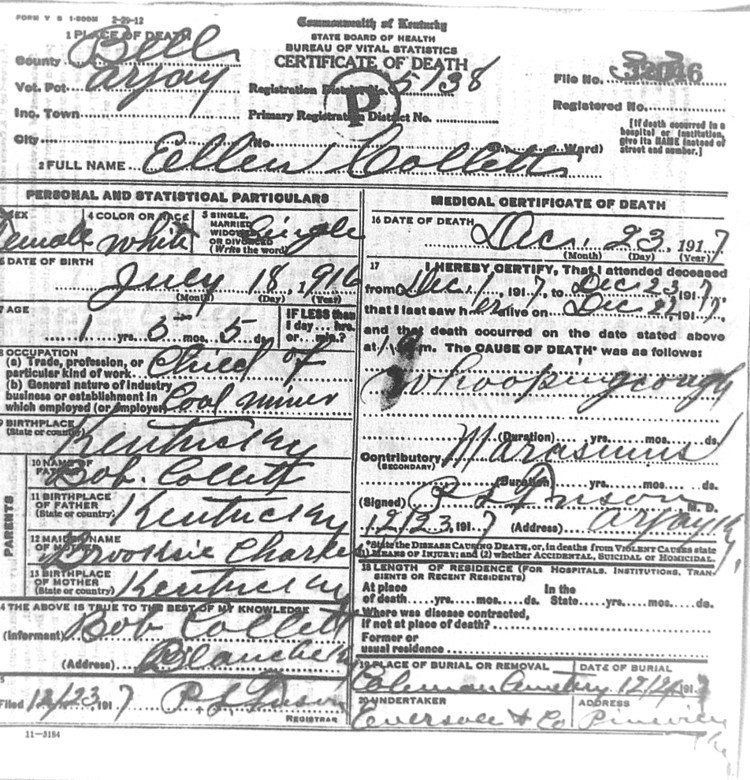 FORM V S 1-500M 2-29-12
Commonwealth of Kentucky
STATE BOARD OF HEALTH
BUREAU OF VITAL STATISTICS
CERTIFICATE OF DEATH
1 PLACE OF DEATH
County Bell
Vot. Pct Arjay
Inc. Town
City
Registration District No. 5138
Primary Registration District No.
P
File No. 32046
Registered No.
(No. Ward)
[If death occurred in a
hospital or institution,
give its NAME instead of
street and number.]
2 FULL NAME Ellen Collett
PERSONAL AND STATISTICAL PARTICULARS
SEX Female
4 COLOR OR RACE White
5 SINGLE, MARRIED, WIDOWED OR DIVORCED (Write the word) Single
6 DATE OF BIRTH
July 18, 1916
(Month) (Day) (Year)
7 AGE
1 yrs. 5 mos. 5 ds.
IF LESS than
1 day... hrs.
or... min.?
8 OCCUPATION
(a) Trade, profession, or
particular kind of work Child of
(b) General nature of industry
business or establishment in
which employed (or employer) Coal miner
9 BIRTHPLACE
(State or country) Kentucky
PARENTS
10 NAME OF FATHER Bob. Collett
11 BIRTHPLACE
OF FATHER
(State or country) Kentucky
12 MAIDEN NAME
OF MOTHER
13 BIRTHPLACE
OF MOTHER
(State or country) Kentucky
14 THE ABOVE IS TRUE TO THE BEST OF MY KNOWLEDGE
(Informant) Bob Collett
(Address) Blanche Ky
Filed 12/23, 1917
REGISTRAR
11-3184
MEDICAL CERTIFICATE OF DEATH
16 DATE OF DEATH
Dec. 23, 1917
(Month) (Day) (Year)
17 I HEREBY CERTIFY, That I attended deceased
from Dec. 1, 1917, to Dec 23 1917
that I last saw her alive on Dec 22 1917
and that death occurred on the date stated above
at m. The CAUSE OF DEATH* was as follows:
Whooping cough
(Duration) yrs. mos. ds.
Contributory Marasmus
(SECONDARY)
(Duration) yrs. mos. ds.
(Signed) M. D.
12/23 1917 (Address) Arjay Ky.
*State the DISEASE CAUSING DEATH, or, in deaths from VIOLENT CAUSES state
(1) MEANS OF INJURY; and (2) whether ACCIDENTAL, SUICIDAL or HOMICIDAL.
18 LENGTH OF RESIDENCE (FOR HOSPITALS, INSTITUTIONS, TRAN-
SIENTS OR RECENT RESIDENTS)
At place In the
of death yrs. mos. ds. State yrs. mos. ds.
Where was disease contracted,
if not at place of death?
Former or
usual residence
19 PLACE OF BURIAL OR REMOVAL DATE OF BURIAL
Coleman Cemetery 12/24 1917
20 UNDERTAKER ADDRESS
Eversole & Co Pineville
Ky